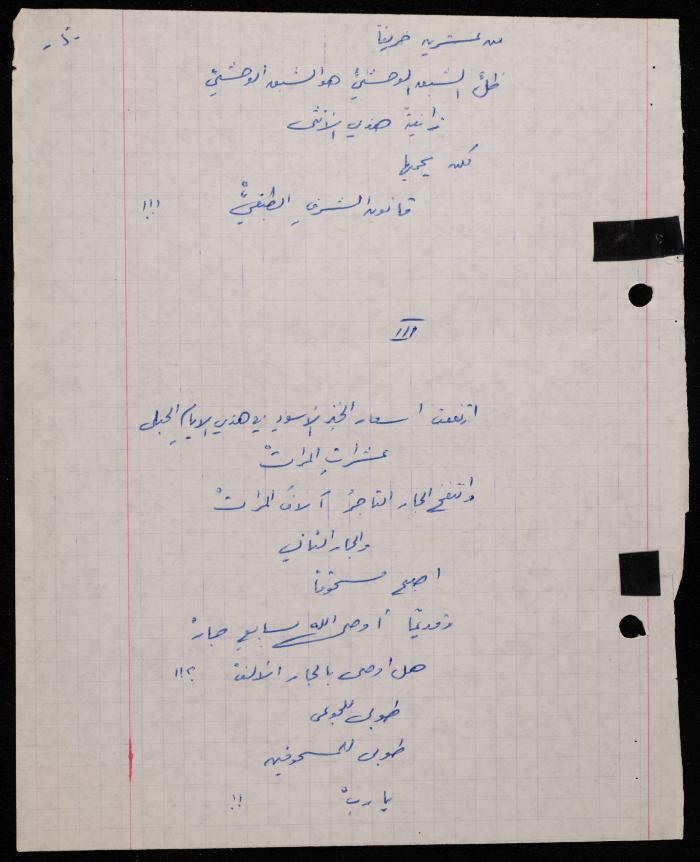 -٦-
من عشرين خريفاً
ظلَّ الشبق الوحشيُّ هو الشبق الوحشيّ
زانيةٌ هذي الأنثى
لكن يحميها
قانون الشرفِ الطبقيّْ !!!
III
ارتفعت اسعار الخبز الأسودِ في هذي الايامِ الحبلى
عشراتِ المراتْ
وانتفخ الجار التاجرُ آلافَ المراتْ
والجار الثاني
اصبح مسحوقاً
وقديماً أوصى الله بسابعِ جارْ
هل اوصى بالجار الألفْ ؟!!
طوبى للجوعى
طوبى للمسحوقين
يا ربْ !!